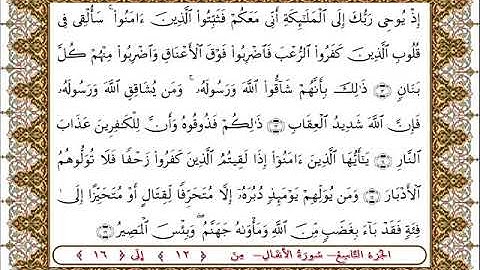 إِذْ يُوحِى رَبُّكَ إِلَى ٱلْمَلَـٰٓئِكَةِ أَنِّى مَعَكُمْ فَثَبِّتُوا۟ ٱلَّذِينَ ءَامَنُوا۟ ۚ سَأُلْقِى فِى
قُلُوبِ ٱلَّذِينَ كَفَرُوا۟ ٱلرُّعْبَ فَٱضْرِبُوا۟ فَوْقَ ٱلْأَعْنَاقِ وَٱضْرِبُوا۟ مِنْهُمْ كُلَّ
بَنَانٍ ﴿١٢﴾ ذَٰلِكَ بِأَنَّهُمْ شَآقُّوا۟ ٱللَّهَ وَرَسُولَهُۥ ۚ وَمَن يُشَاقِقِ ٱللَّهَ وَرَسُولَهُۥ
فَإِنَّ ٱللَّهَ شَدِيدُ ٱلْعِقَابِ ﴿١٣﴾ ذَٰلِكُمْ فَذُوقُوهُ وَأَنَّ لِلْكَـٰفِرِينَ عَذَابَ
ٱلنَّارِ ﴿١٤﴾ يَـٰٓأَيُّهَا ٱلَّذِينَ ءَامَنُوٓا۟ إِذَا لَقِيتُمُ ٱلَّذِينَ كَفَرُوا۟ زَحْفًا فَلَا تُوَلُّوهُمُ
ٱلْأَدْبَارَ ﴿١٥﴾ وَمَن يُوَلِّهِمْ يَوْمَئِذٍ دُبُرَهُۥٓ إِلَّا مُتَحَرِّفًا لِّقِتَالٍ أَوْ مُتَحَيِّزًا إِلَىٰ
فِئَةٍ فَقَدْ بَآءَ بِغَضَبٍ مِّنَ ٱللَّهِ وَمَأْوَىٰهُ جَهَنَّمُ ۖ وَبِئْسَ ٱلْمَصِيرُ ﴿١٦﴾
الجزء التاسع- سورة الأنفال- من ﴿ ١٢ ﴾ إلى ﴿ ١٦ ﴾